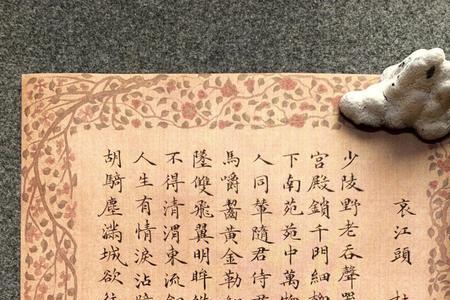 哀江頭
少陵野老吞聲
宮殿鎖千門細柳
下南苑苑中萬物
人同輦隨君侍君
馬嚼齧黃金勒
墜雙飛翼明眸
不得清渭東流
人生有情淚沾臆
胡騎塵滿城欲往